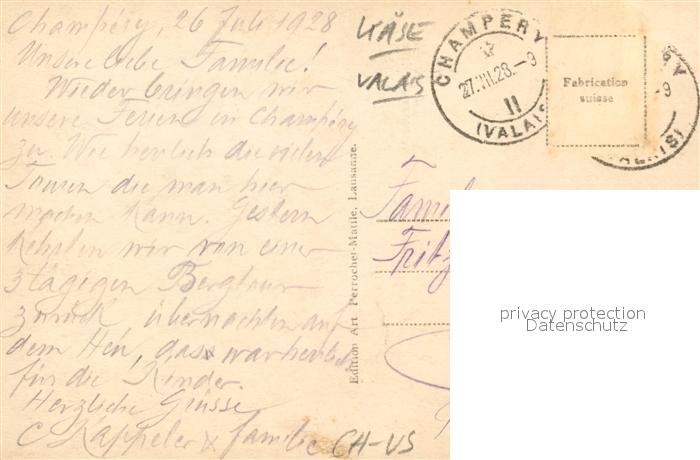 Champéry, 26 Juli 1928
Unsere liebe Familie!
Wieder bringen wir
unsere Ferien in Champéry
zu. Wie herrlich die vielen
Touren die man hier
machen kann. Gestern
kehrten wir von einer
3tägigen Bergtour
zurück übernachten auf
dem Heu, das war herrlich
für die Kinder.
Herzliche Grüsse
C Kappeler & familie
CH-VS
VALAIS
CHAMPERY
27.VII.28.-9
II
(VALAIS)
Fabrication
suisse
Y
-9
Edition Art Perrochet-Matile, Lausanne.
Famil
Fritz
privacy protection
Datenschutz